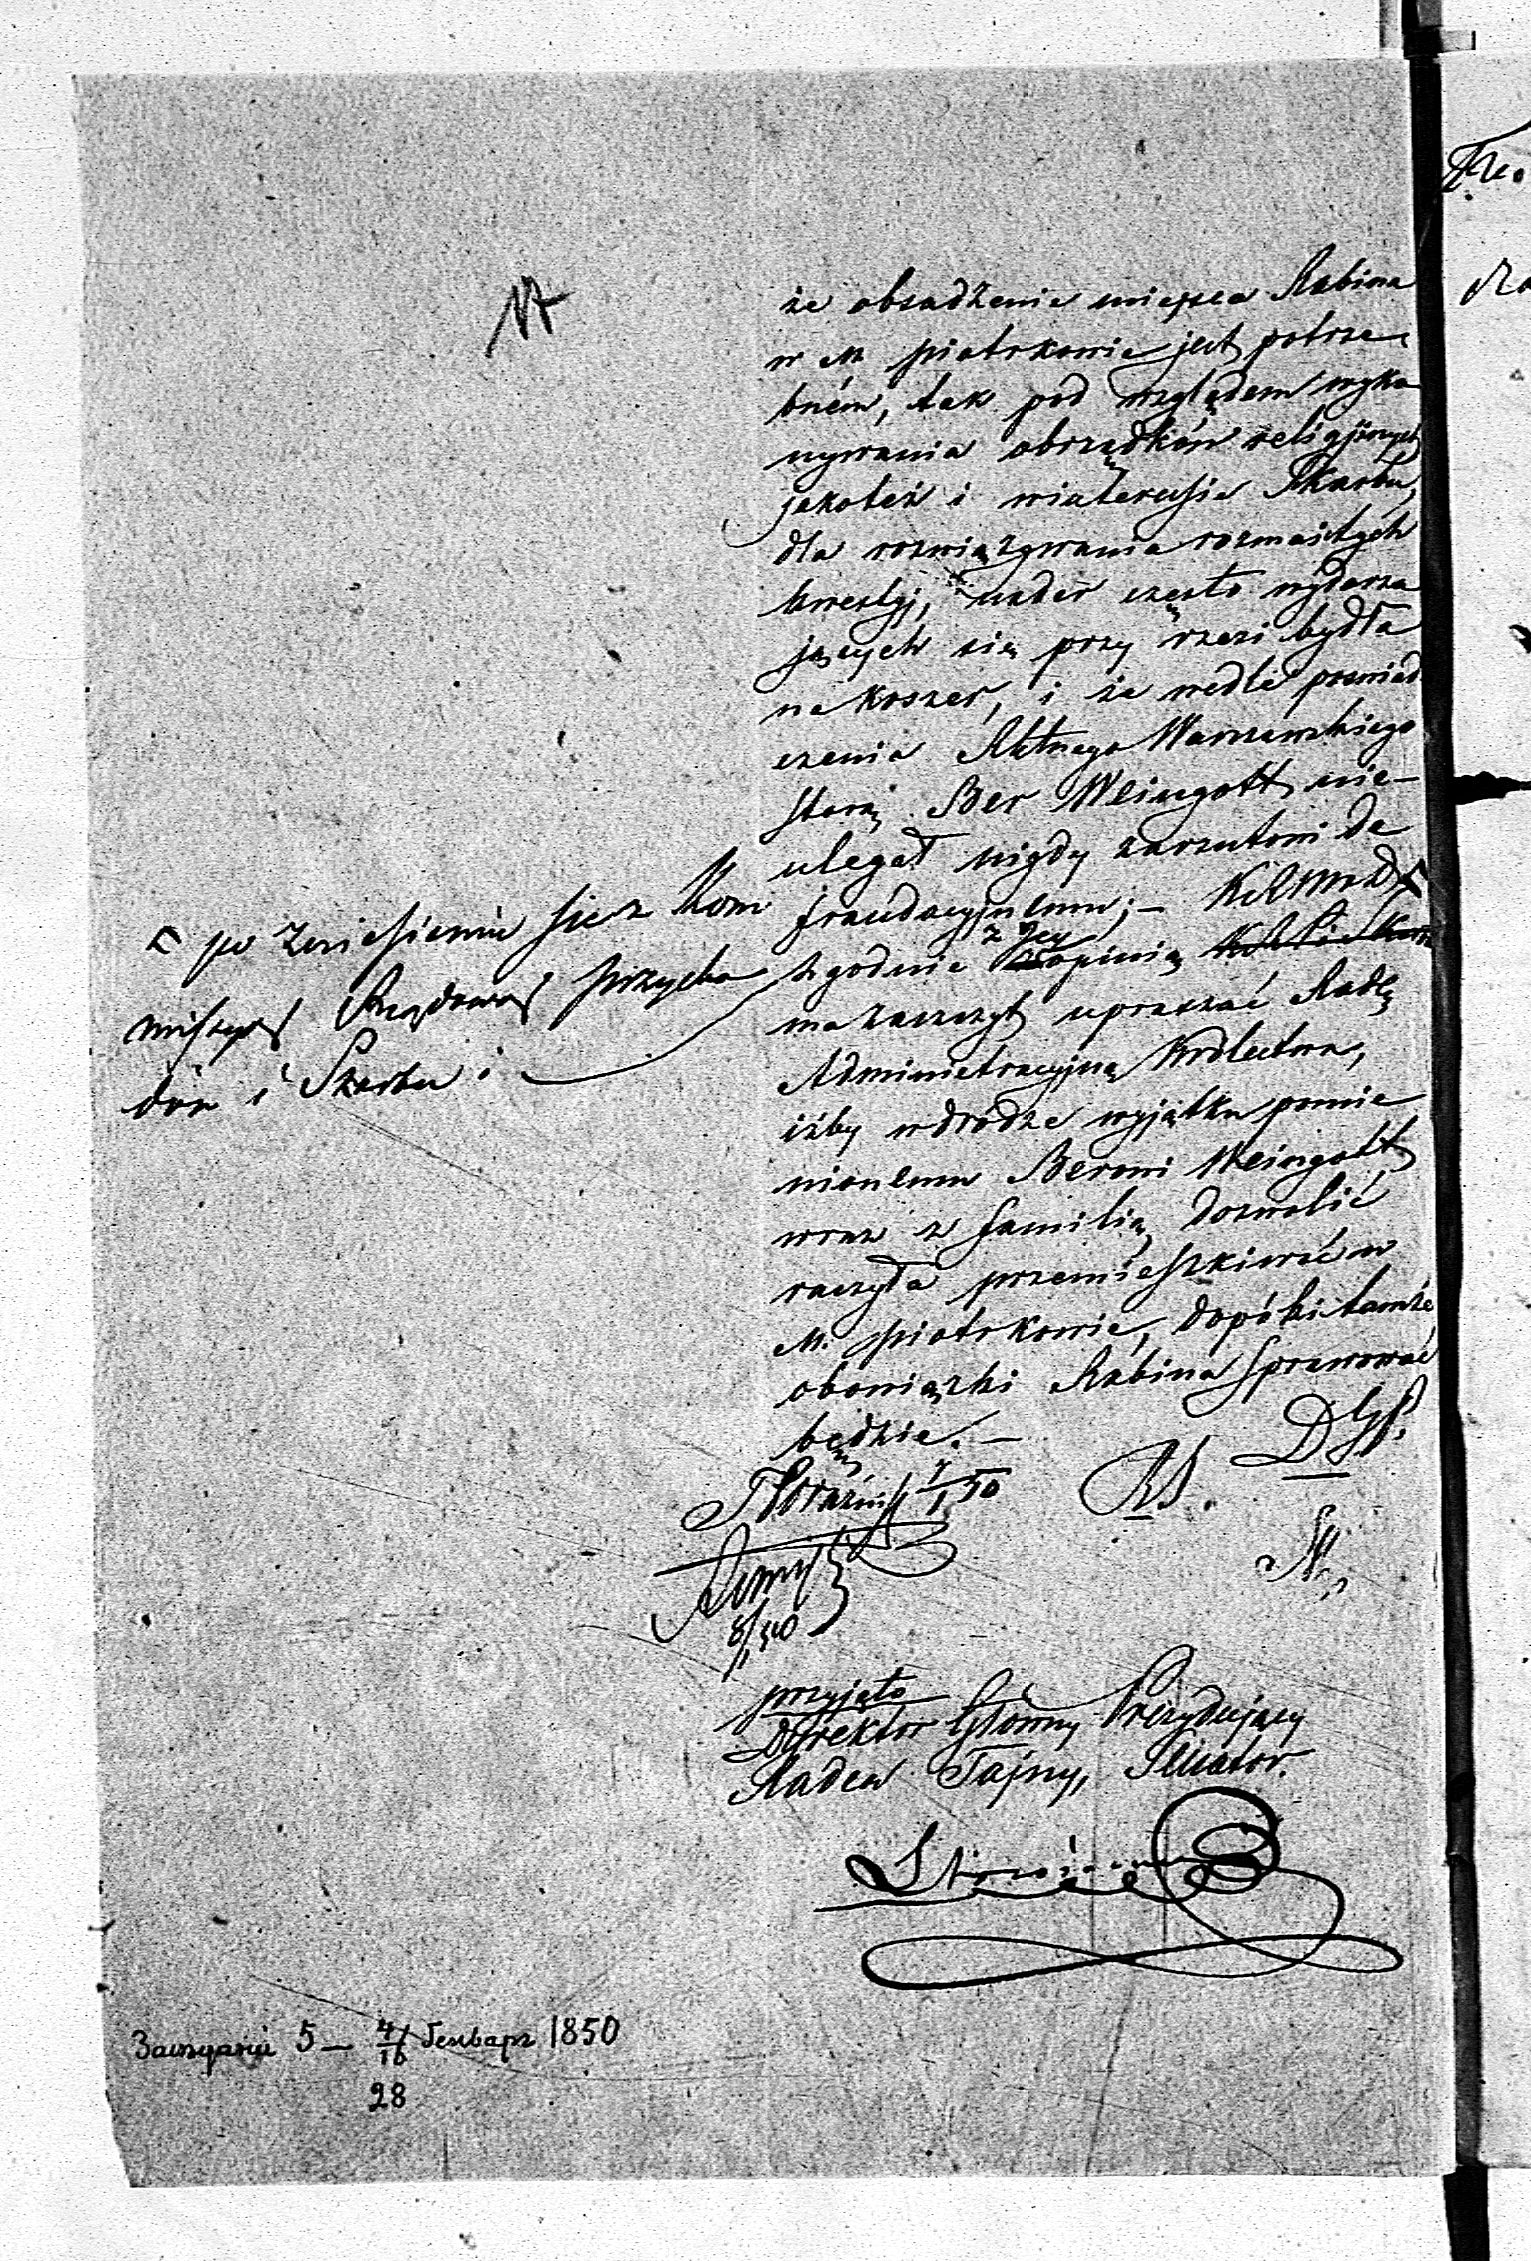 17
że obsadzenie miejsca Rabina
w M piotrkowie jest potrze
bném, tak pod względem wyko
nywania obrządków religijnych
jakoteż i winteresie Skarbu,
dla rozwiązywania rozmaitych
kwestyj, nader często wydarza
jących się przy rzezi bydła
na koszer, i że wedle poświad
czenia Aktnego Warszawskiego
starz. Ber Weingott nie
ulegał nigdy zarzutowi de
fraudacyjnemu; – KRSWD
zgodnie z Jej opinią
ma zaszczyt upraszać Radę
Administracyjną Królestwa,
iżby w drodze wyjątku pomie
nionemu Berowi Weingott
wraz z familią dozwolić
raczyła przemieszkiwać w
M. piotrkowie, dopóki tamże
obowiązki Rabina sprawować
będzie. –
po zniesieniu się z Kom
missyą Rządową Przycho
dów i Skarbu i
7/1 50
8/1 50
przyjęto
Dyrektor Główny Prezydujący
Radca Tajny, Senator.
Заслушано 5 – 4/16 Генваря 1850
28